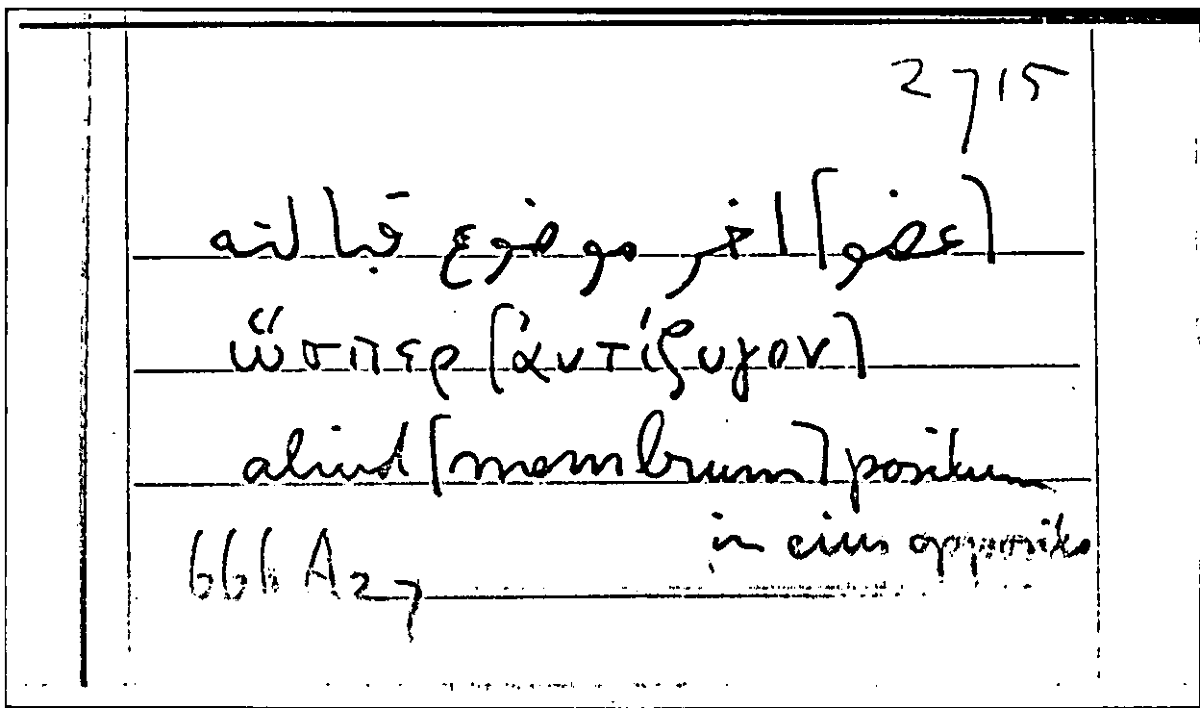 2715
[عضو] اخر موضوع قبالته
ὥσπερ [ἀντίζυγον]
aliud [membrum] positum
in eius opposito
666 A27